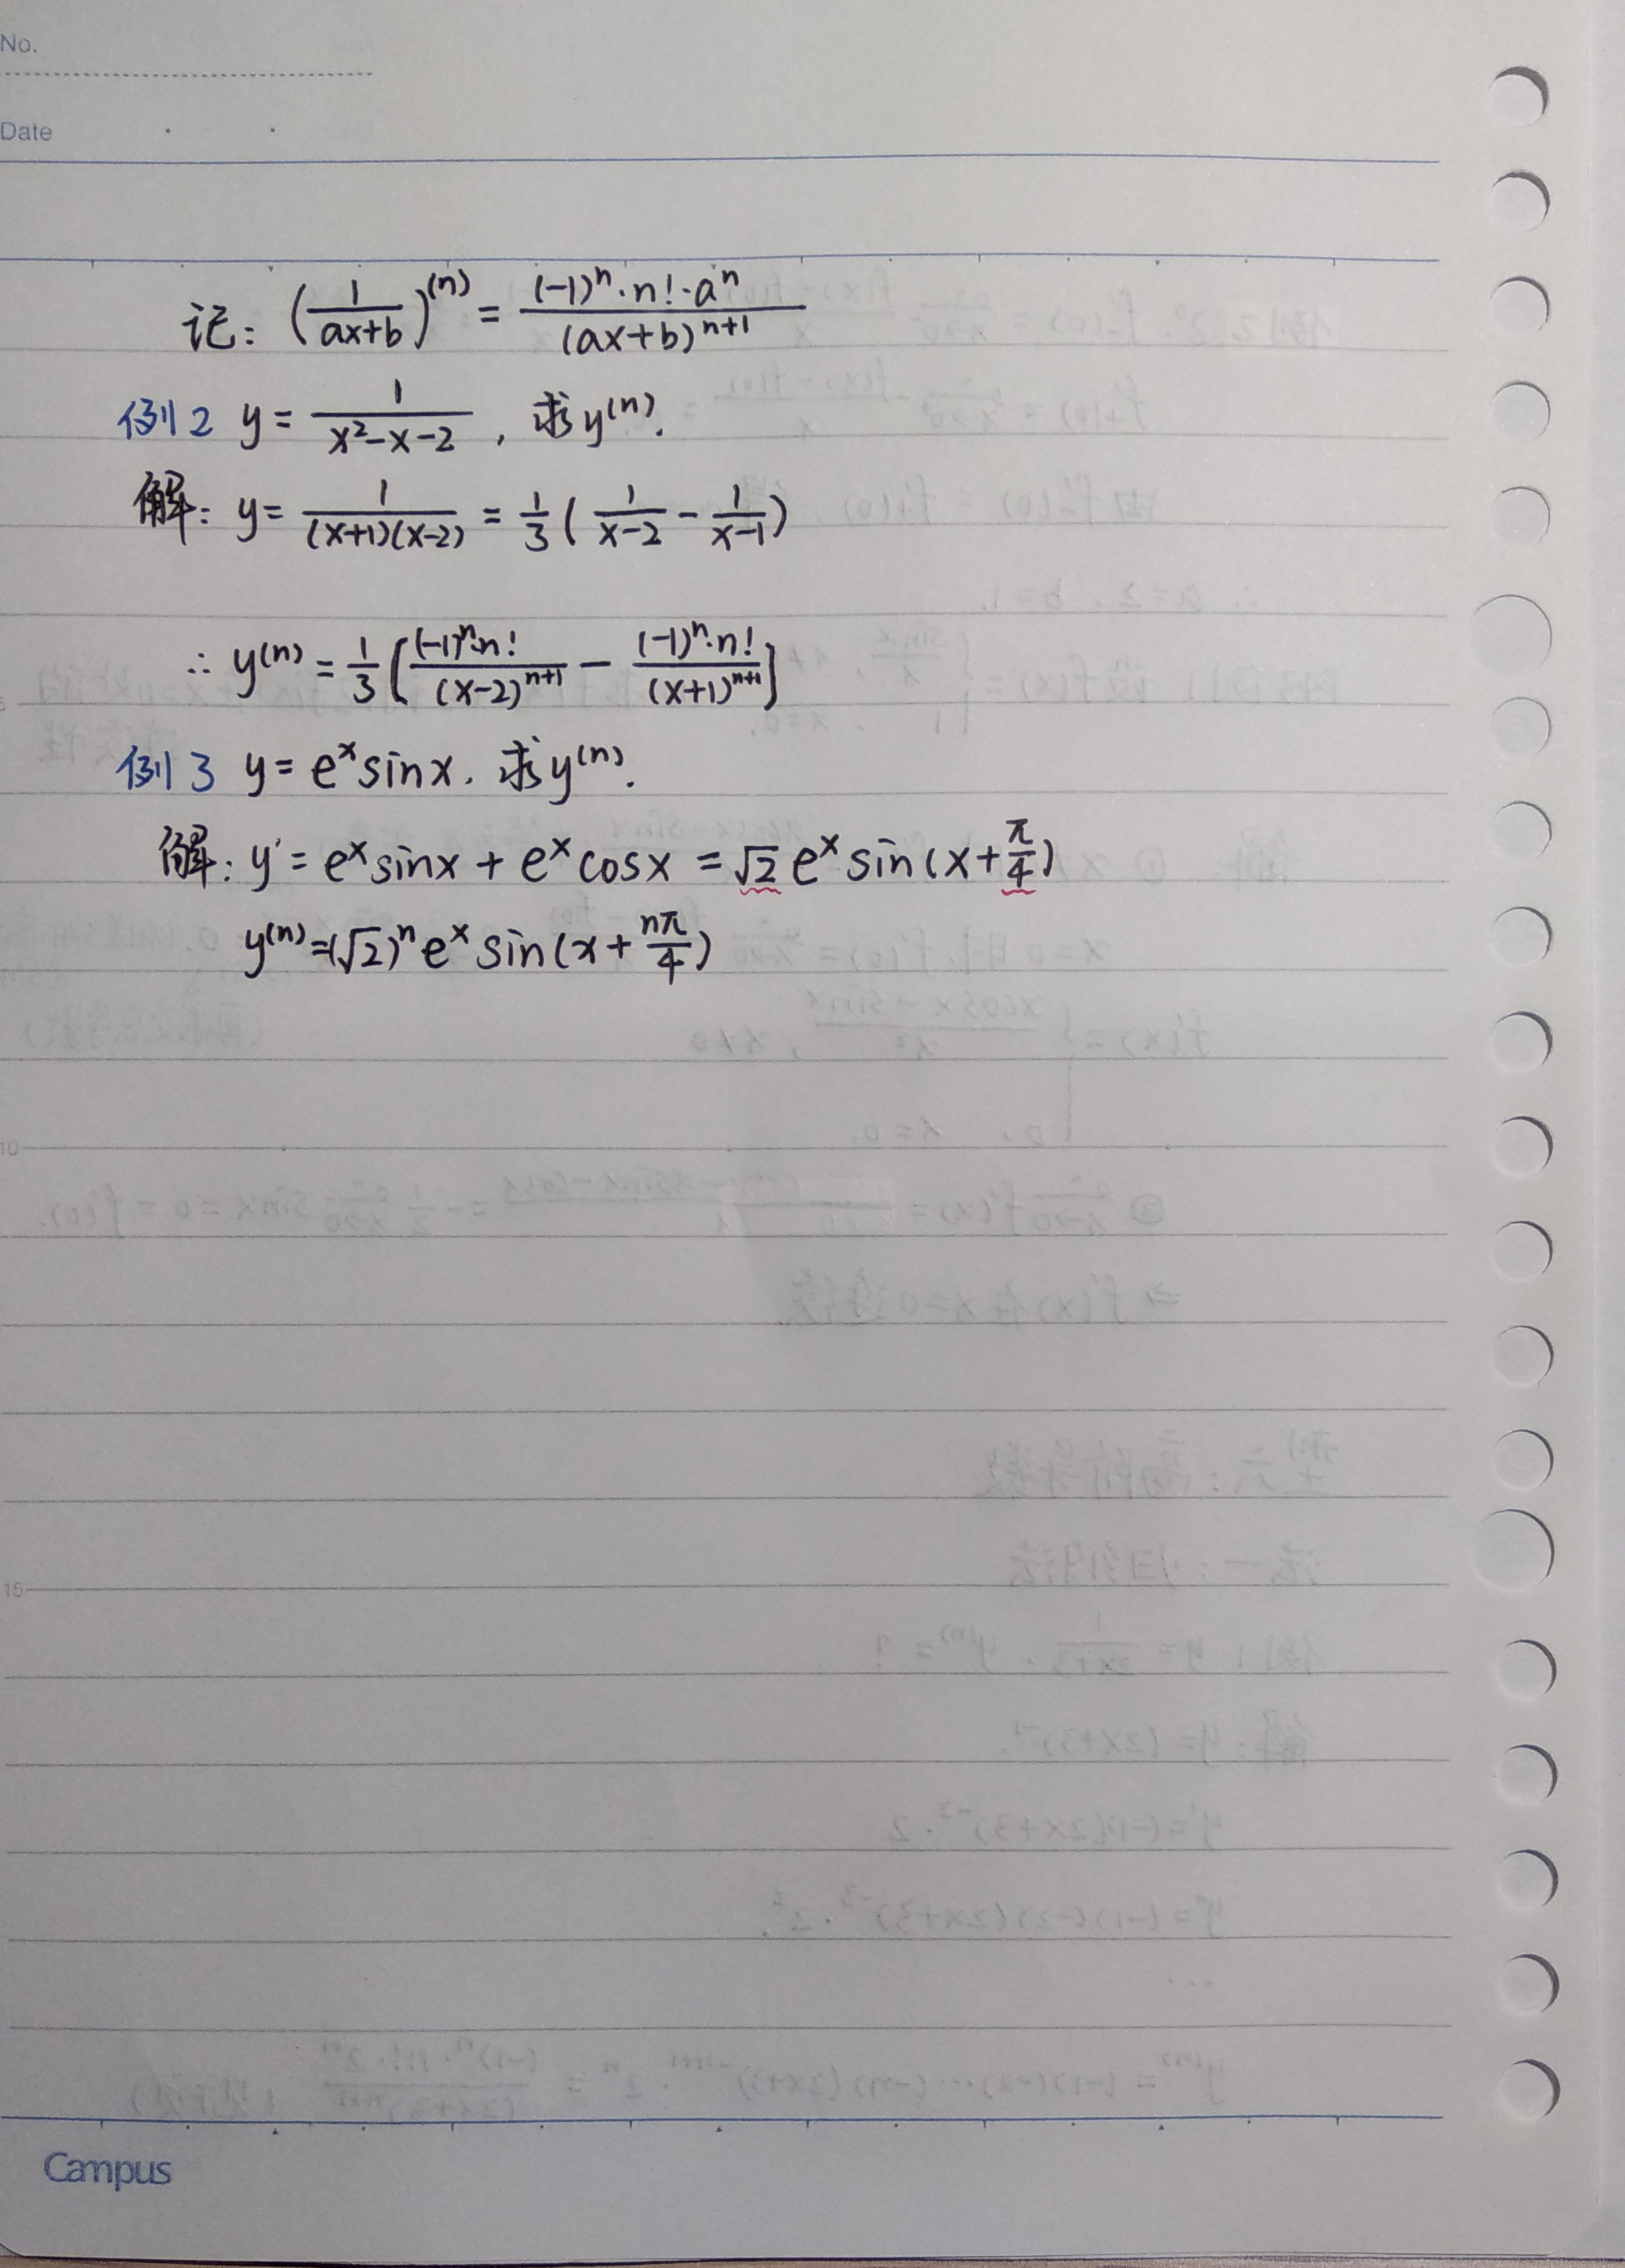 No.
Date
记: (1/(ax+b))^(n) = ((-1)^n·n!·a^n)/((ax+b)^(n+1))
例2 y = 1/(x²-x-2), 求y^(n).
解: y = 1/((x+1)(x-2)) = 1/3 (1/(x-2) - 1/(x-1))
∴ y^(n) = 1/3 [((-1)^n·n!)/((x-2)^(n+1)) - ((-1)^n·n!)/((x+1)^(n+1))]
例3 y = e^x sinx. 求y^(n).
解: y' = e^x sinx + e^x cosx = √2 e^x sin(x+π/4)
y^(n) = (√2)^n e^x sin(x+nπ/4)
10
15
Campus